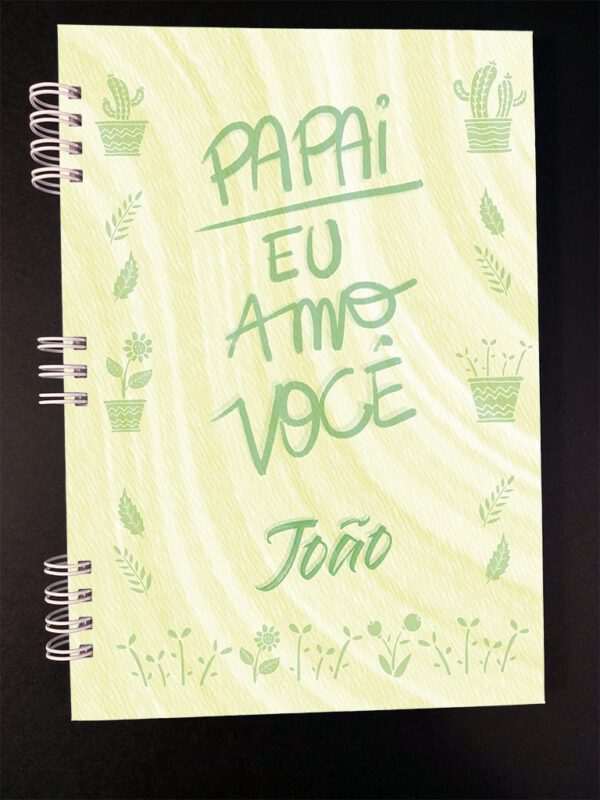 PAPAi
EU
AMO
VOCÊ
João